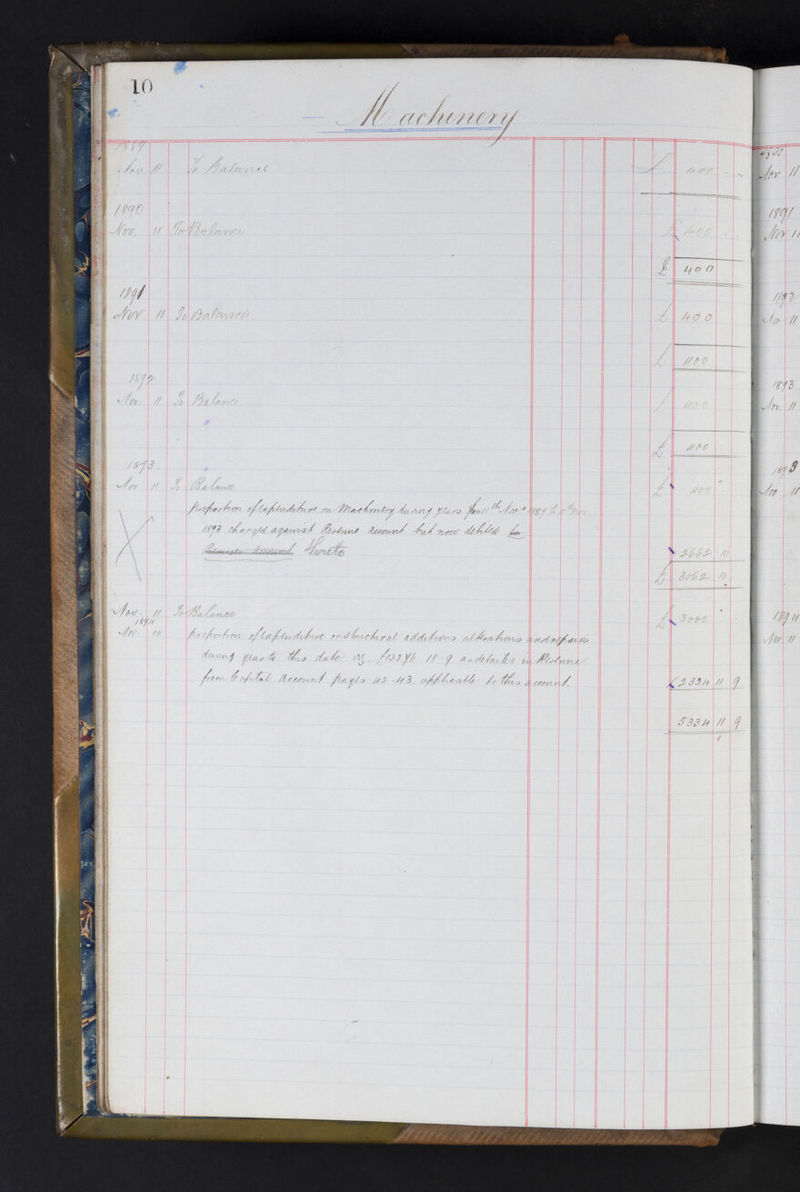 10
Machinery
1889
Nov 11 To Balance £ 400
1890
Nov. 11 To Balance £ 400
£ 400
1891
Nov 11 To Balance £ 400
£ 400
1892
Nov 11 To Balance £ 400
£ 400
1893.
Nov 11 To Balance £ 400
proportion of Expenditure on Machinery during years from 11th Nov 1889 to 11th Nov.
1893 charged against Revenue Account but now debited
Account Hereto 2662 10
£ 3062 10
Nov. 11 To Balance £ 3000
1894
Nov. 11 proportion of Expenditure on structural additions alterations and repairs
during year to this date as debited in Revenue
from Capital Account pages 42-43 applicable to this account. 2334 11 9
5334 11 9
Nov 11
1891
Nov 11
1892
Nov 11
1893
Nov 11
1893
Nov 11
1894
Nov. 11